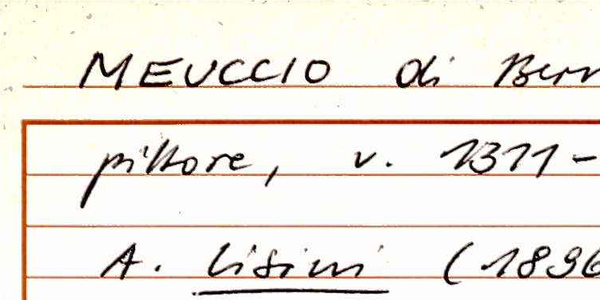 MEUCCIO di Bern
pittore, v. 1311-
A. Lisini (1896